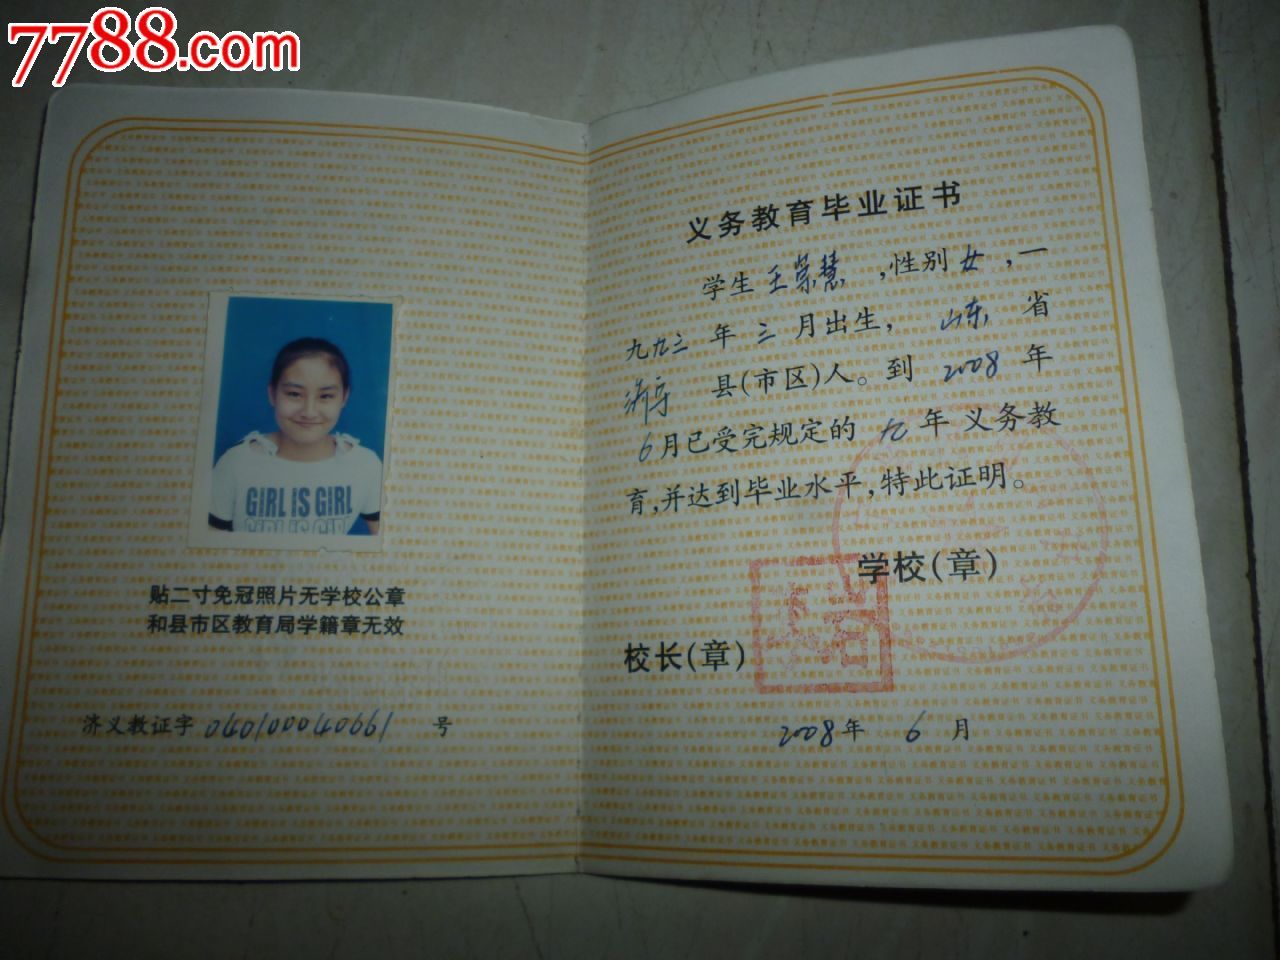 7788.com
GIRL IS GIRL
GIRL IS GIRL
贴二寸免冠照片无学校公章
和县市区教育局学籍章无效
济义教证字 040100040661 号
义务教育毕业证书
学生 王荣慧 ,性别 女 ,一
九九三 年 三 月出生, 山东 省
济宁 县(市区)人。到 2008 年
6 月已受完规定的 九 年 义务教
育,并达到毕业水平,特此证明。
学校(章)
校长(章)
2008 年 6 月